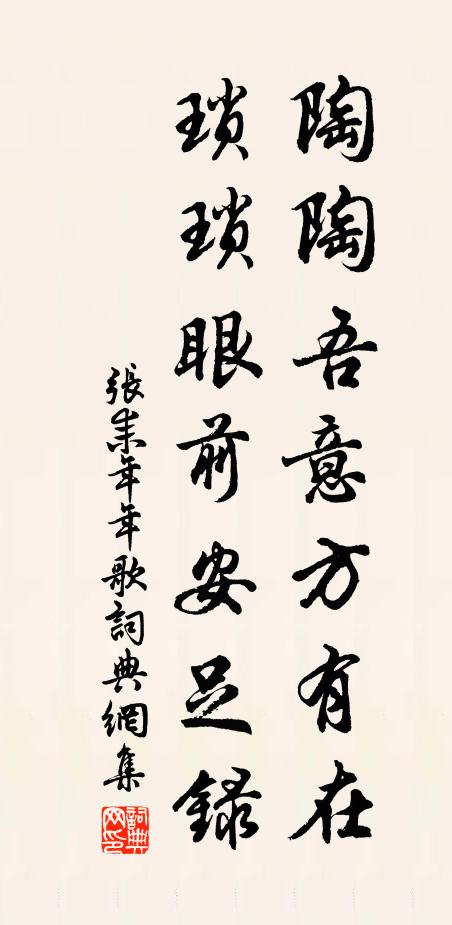 陶陶吾意方有在
瑣瑣眼前安足録
張耒年年歌詞典網集
詞典網印